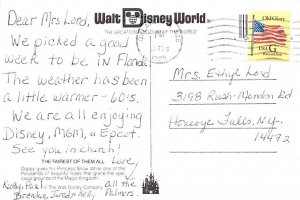 Dear Mrs Lord,
We picked a good
week to be in Florida
The weather has been
a little warmer - 60's.
We are all enjoying
Disney, MGM, & Epcot.
See you in church!
Love,
all the
Palmers.
Kathy, Paul
Brendan, Jared & Kelly
Walt Disney World
THE VACATION KINGDOM OF THE WORLD
THE FAIREST OF THEM ALL
Dopey gives his Princess Snow White one of the
thousands of beautiful roses that grace the spa-
cious of the Magic Kingdom
The Walt Disney Company
Old Glory
USA G
Mrs. Ethyl Lord
3198 Rush-Mendon Rd
Honeoye Falls, N.Y.
14472